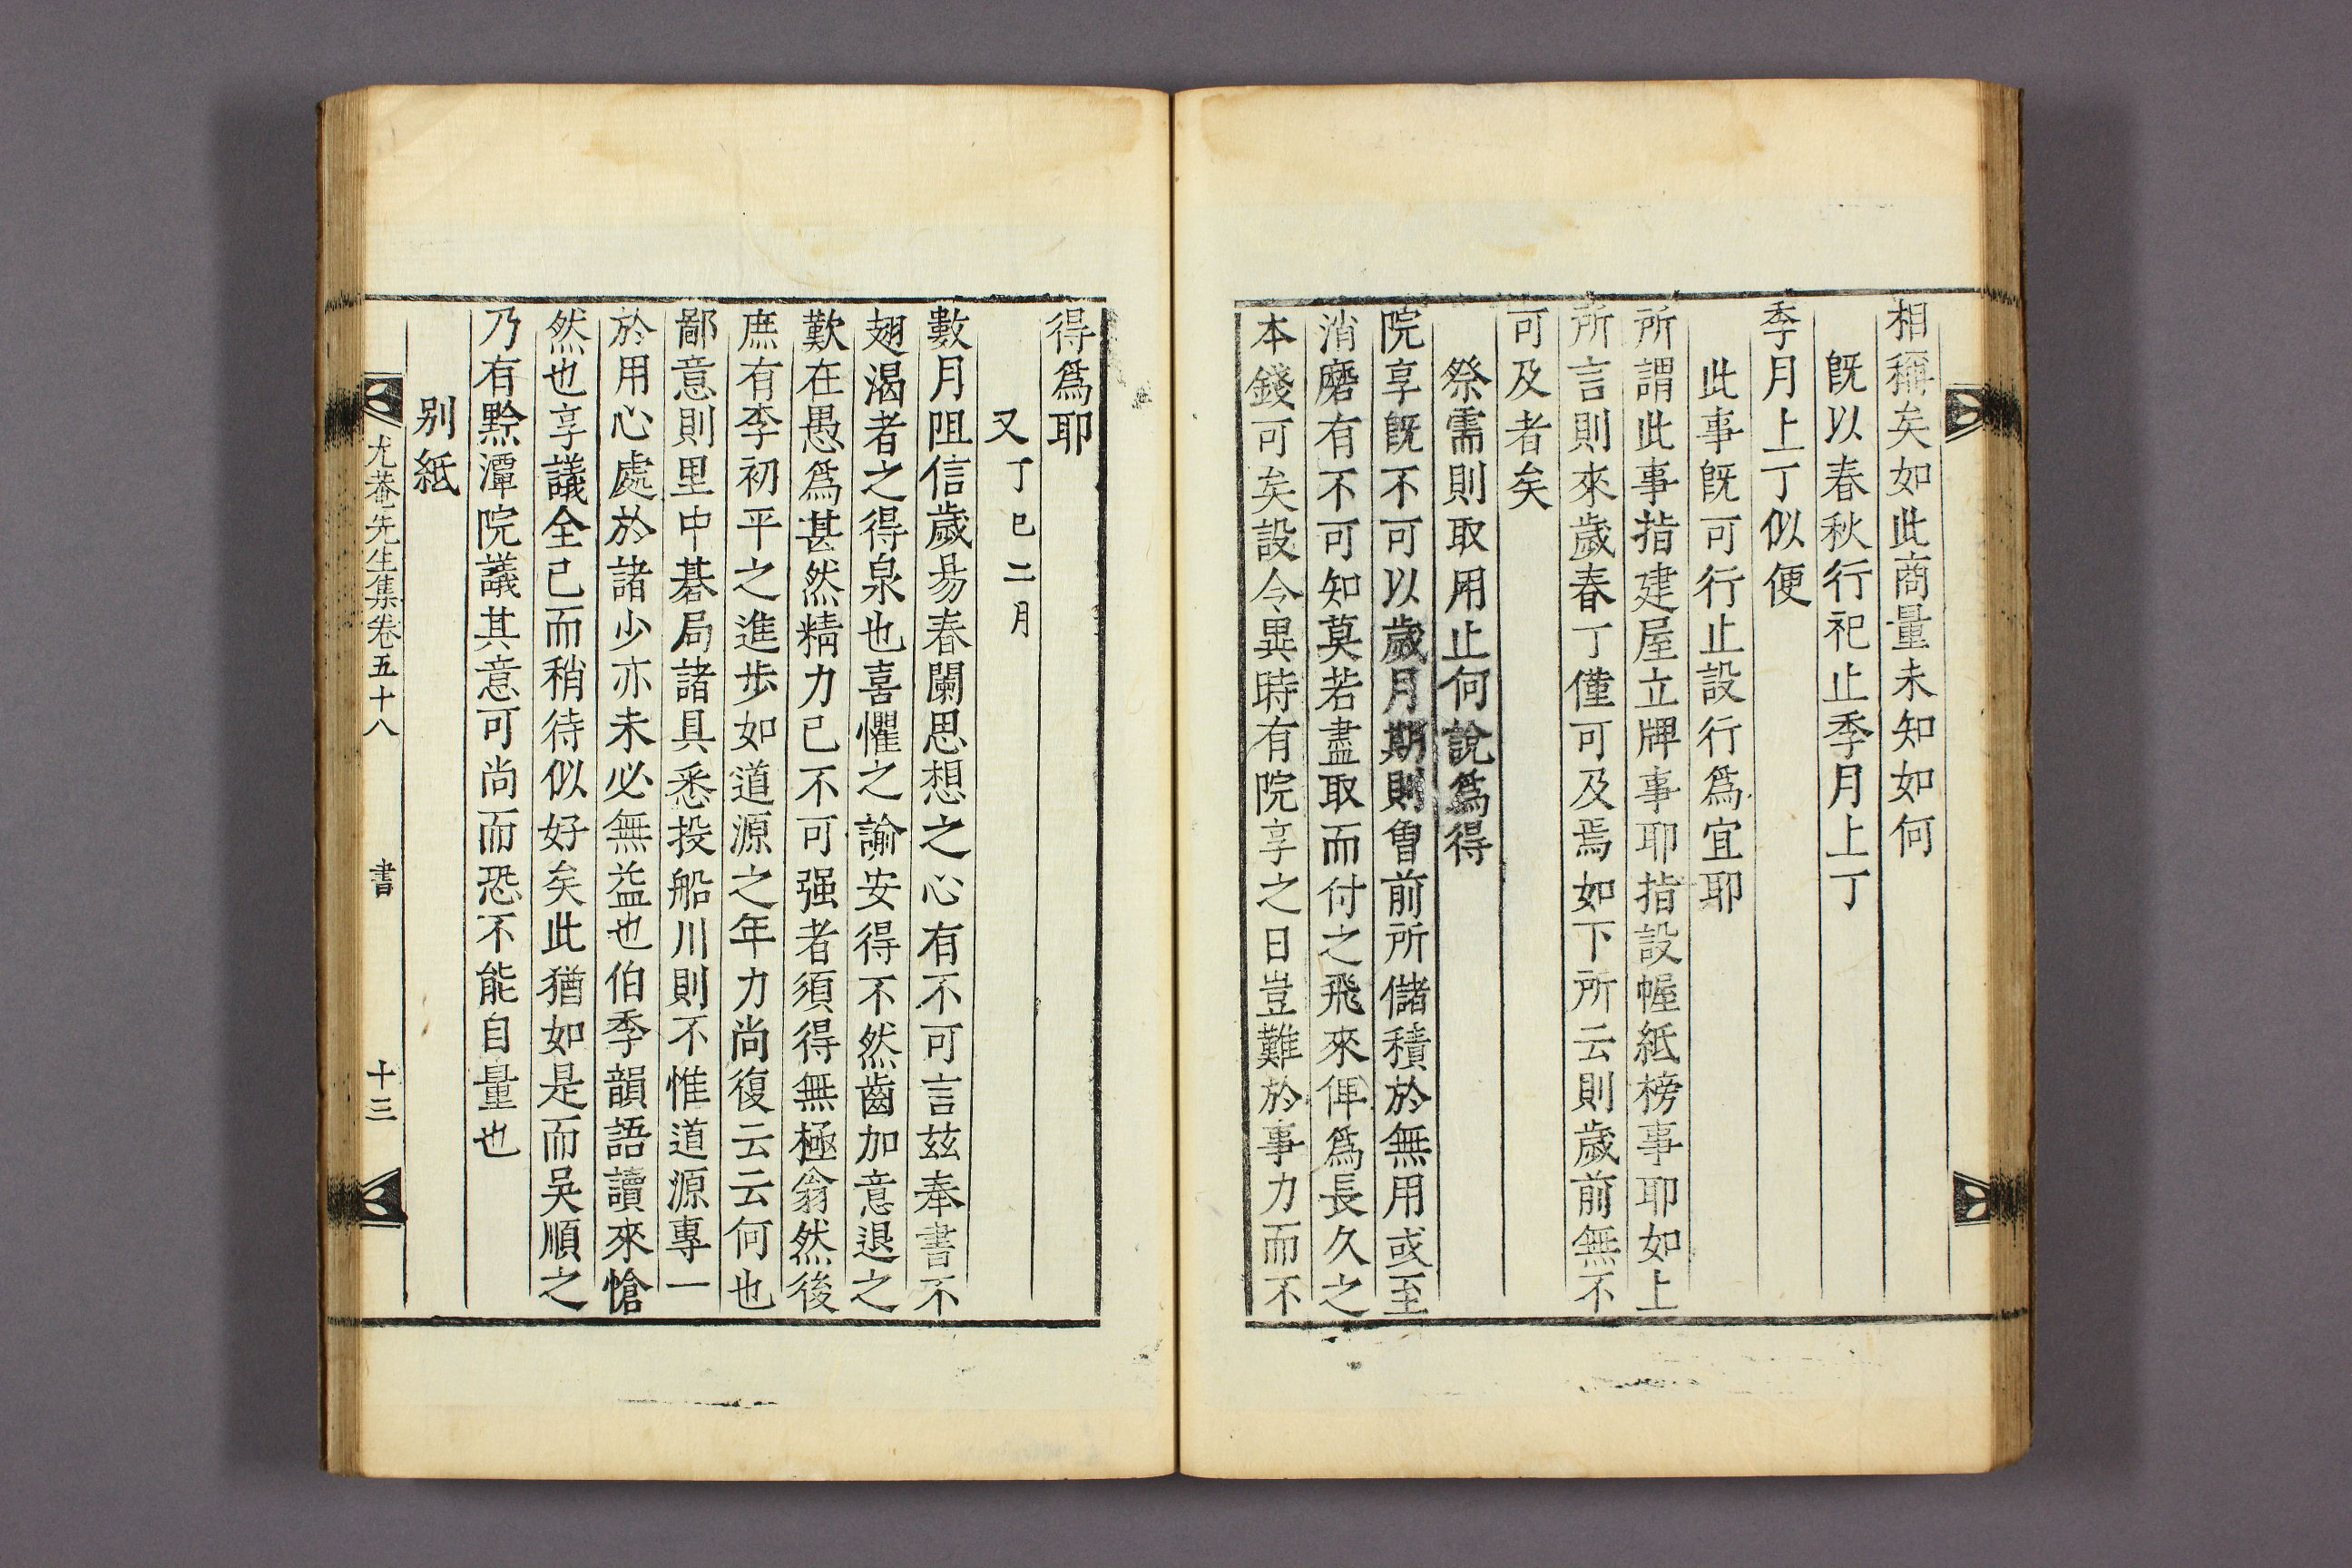 相稱矣如此商量未知如何
旣以春秋行祀止季月上丁
季月上丁似便
此事旣可行止設行爲宜耶
所謂此事指建屋立牌事耶指設幄紙榜事耶如上
所言則來歲春丁僅可及焉如下所云則歲前無不
可及者矣
祭需則取用止何說爲得
院享旣不可以歲月期則曾前所儲積於無用或至
消磨有不可知莫若盡取而付之飛來俾爲長久之
本錢可矣設令異時有院享之日豈難於事力而不
得爲耶
又丁巳二月
數月阻信歲昜春闌思想之心有不可言玆奉書不
翅渴者之得泉也喜懼之諭安得不然齒加意退之
歎在愚爲甚然精力已不可强者須得無極翁然後
庶有李初平之進步如道源之年力尚復云云何也
鄙意則里中碁局諸具悉投船川則不惟道源專一
於用心處於諸少亦未必無益也伯季韻語讀來愴
然也享議全已而稍待似好矣此猶如是而吳順之
乃有黔潭院議其意可尚而恐不能自量也
别紙
尤菴先生集卷五十八 書 十三